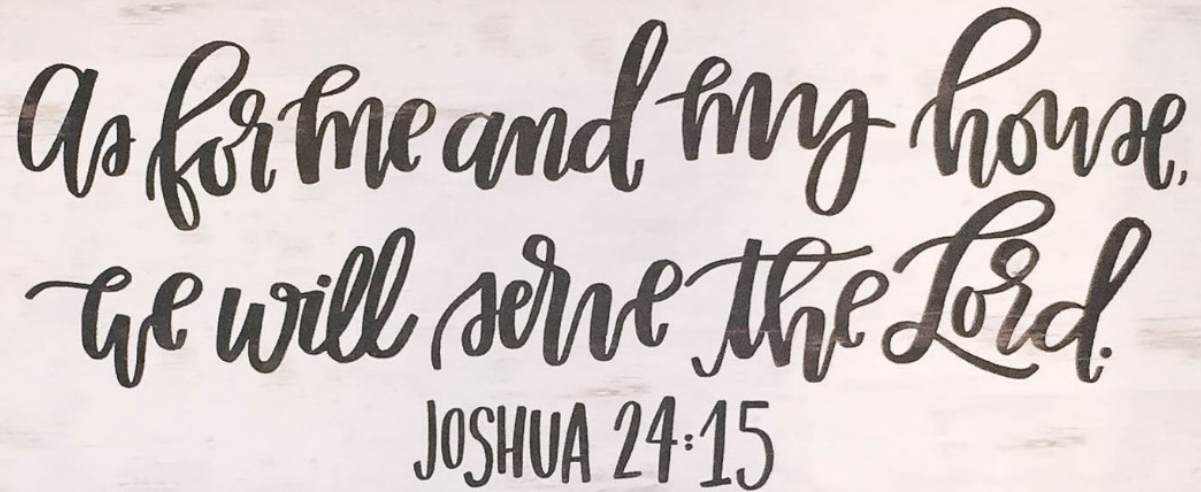 As for me and my house,
we will serve the Lord.
JOSHUA 24:15